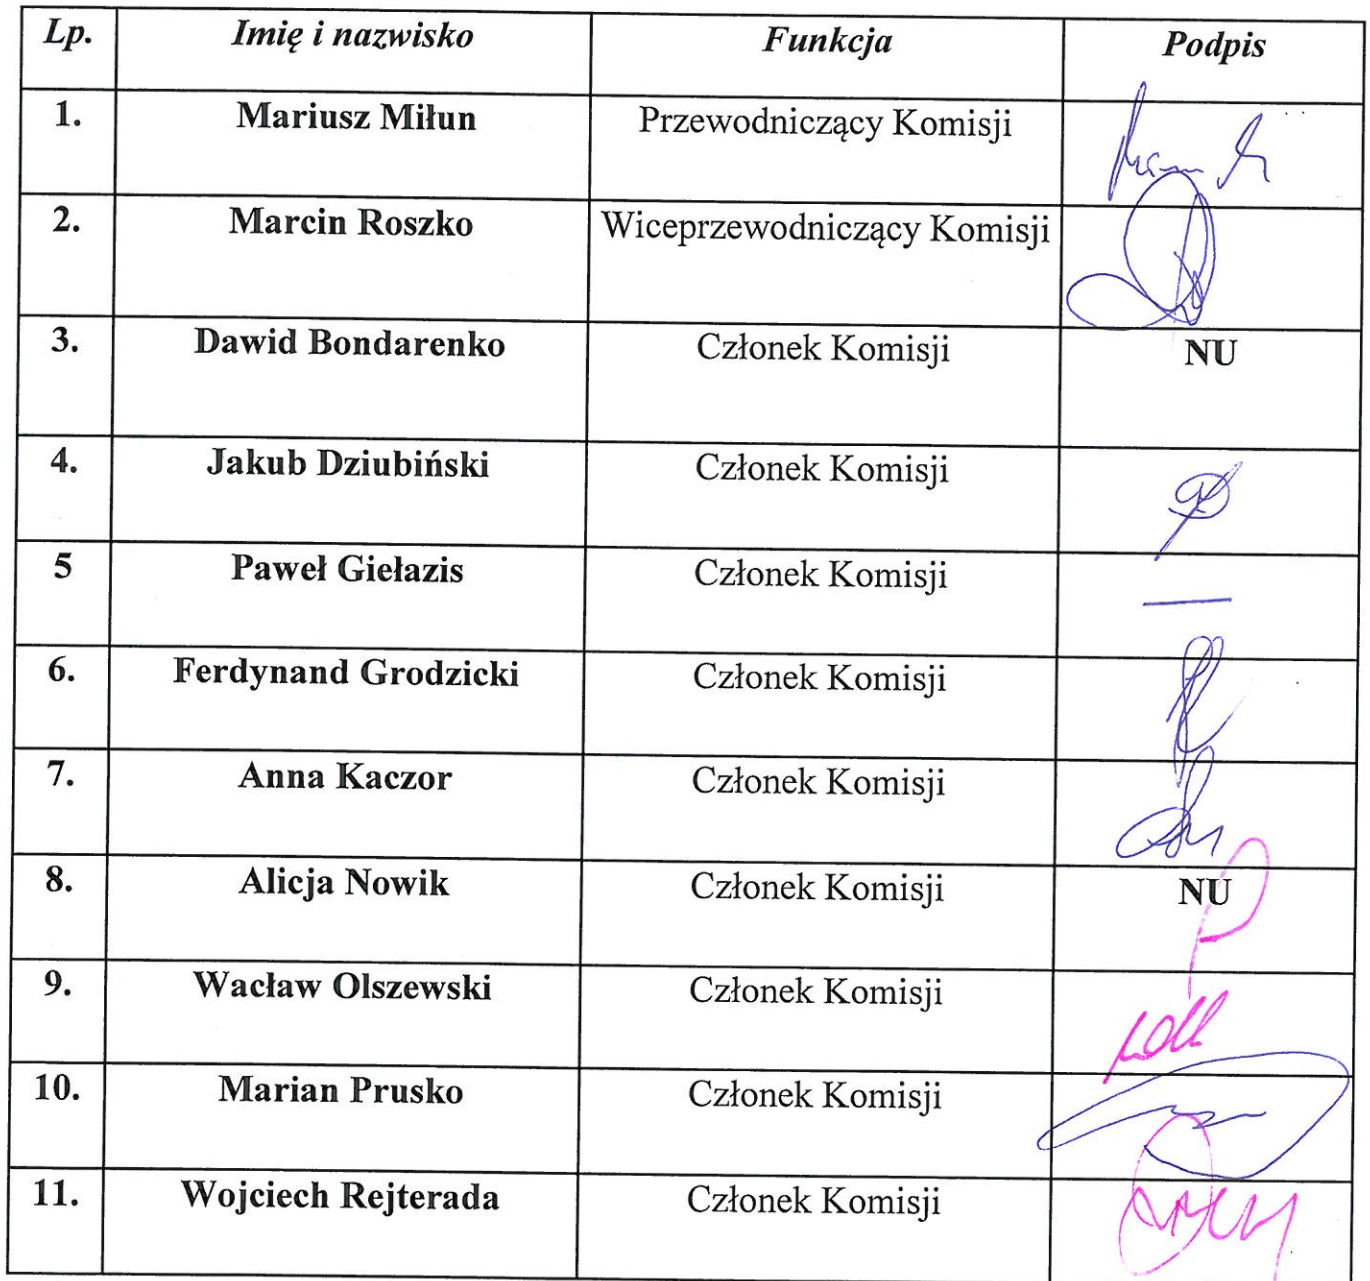 Lp. Imię i nazwisko Funkcja Podpis
1. Mariusz Miłun Przewodniczący Komisji
2. Marcin Roszko Wiceprzewodniczący Komisji
3. Dawid Bondarenko Członek Komisji NU
4. Jakub Dziubiński Członek Komisji
5 Paweł Giełazis Członek Komisji —
6. Ferdynand Grodzicki Członek Komisji
7. Anna Kaczor Członek Komisji
8. Alicja Nowik Członek Komisji NU
9. Wacław Olszewski Członek Komisji
10. Marian Prusko Członek Komisji
11. Wojciech Rejterada Członek Komisji